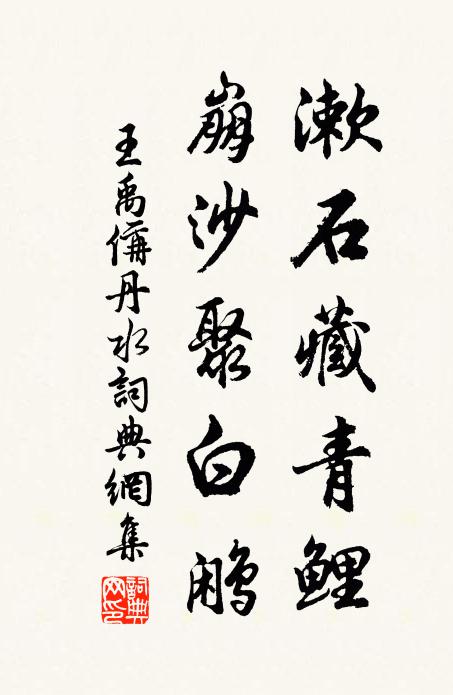 漱石藏青鯉
崩沙聚白鷴
王禹偁丹水詞典網集
詞典網印